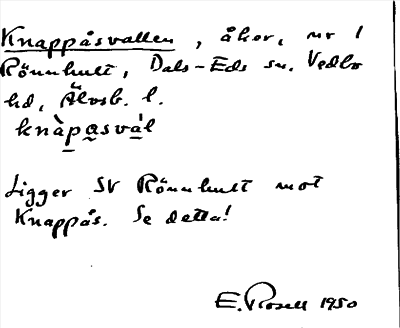 Knappåsvallen, åker, nr 1
Rönnhult, Dals-Eds sn. Vedbo
hd, Älvsb. l.
knàpa̲sva̲̍l
Ligger SV Rönnhult mot
Knappås. Se detta!
E. Rosell 1950